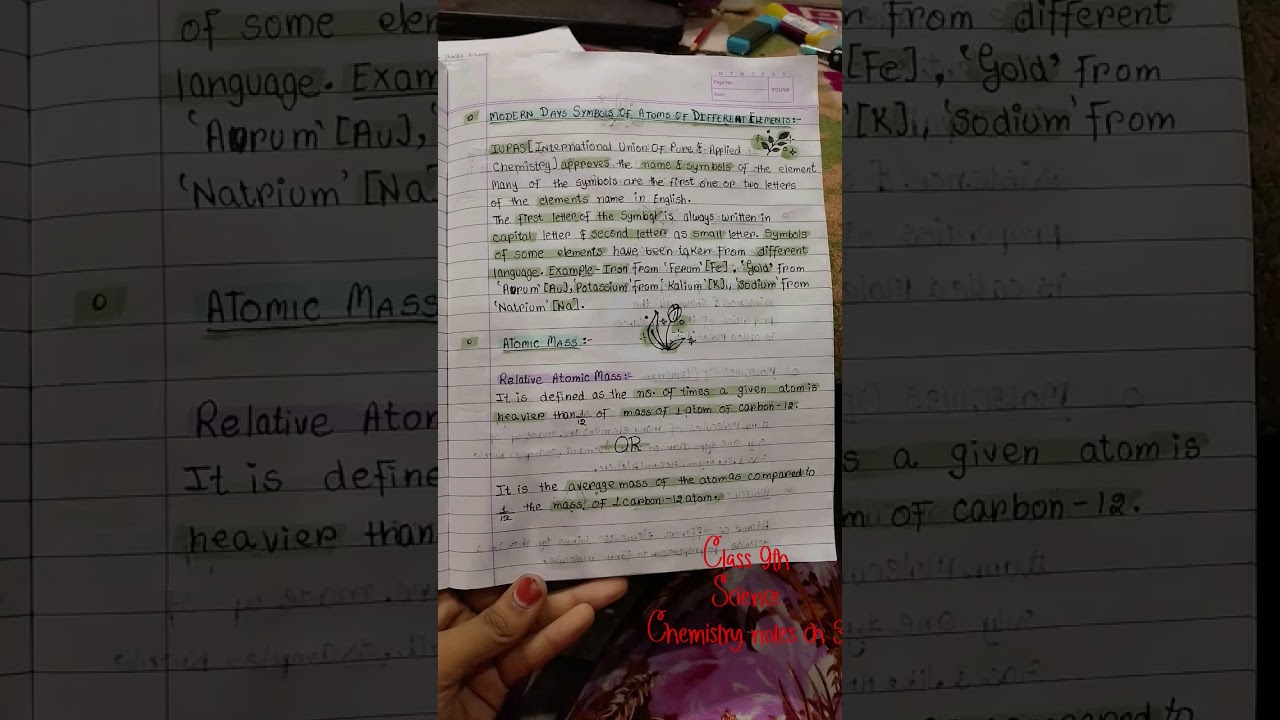 of some elem
language. Exam
'Aurum' [Au],
'Natrium' [Na]
ATOMIC MASS
Relative Atom
It is define
heavier than
M T W T F S S
Page No.:
Date:
YOUVA
MODERN DAYS SYMBOLS OF ATOMS OF DIFFERENT ELEMENTS:-
IUPAS [International Union Of Pure & Applied
Chemistry] approves the name & symbols of the element
Many of the symbols are the first one or two letters
of the elements name in English.
The first letter of the symbol is always written in
capital letter & second letter as small letter. Symbols
of some elements have been taken from different
language. Example - Iron from 'Ferum' [Fe], 'Gold' from
'Aurum' [Au], Potassium from 'Kalium' [K], 'Sodium' from
'Natrium' [Na].
ATOMIC MASS :-
Relative Atomic Mass:-
It is defined as the no. of times a given atom is
heavier than 1/12 of mass of 1 atom of carbon-12.
OR
It is the average mass of the atomas compared to
1/12 the mass of 1 carbon-12 atom.
Class 9th
Science
Chemistry notes ch 3
n from different
[Fe], 'Gold' from
[K], 'Sodium' from
s a given atom is
m of carbon-12.
compared to